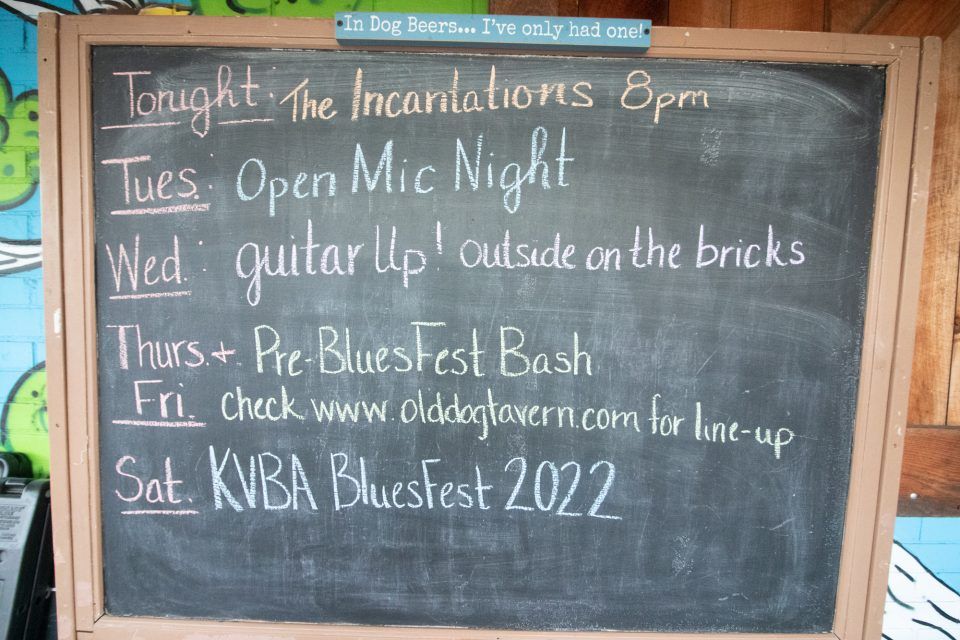 In Dog Beers... I've only had one!
Tonight: The Incantations 8pm
Tues: Open Mic Night
Wed.: guitar Up! outside on the bricks
Thurs. + Pre-BluesFest Bash
Fri. check www.olddogtavern.com for line-up
Sat. KVBA BluesFest 2022